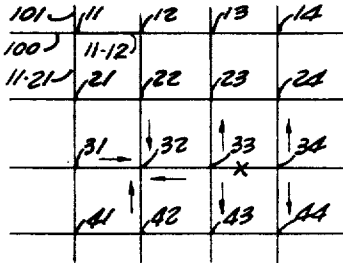 101 11 12 13 14
100 11-12
11-21 21 22 23 24
31 32 33 34
X
41 42 43 44